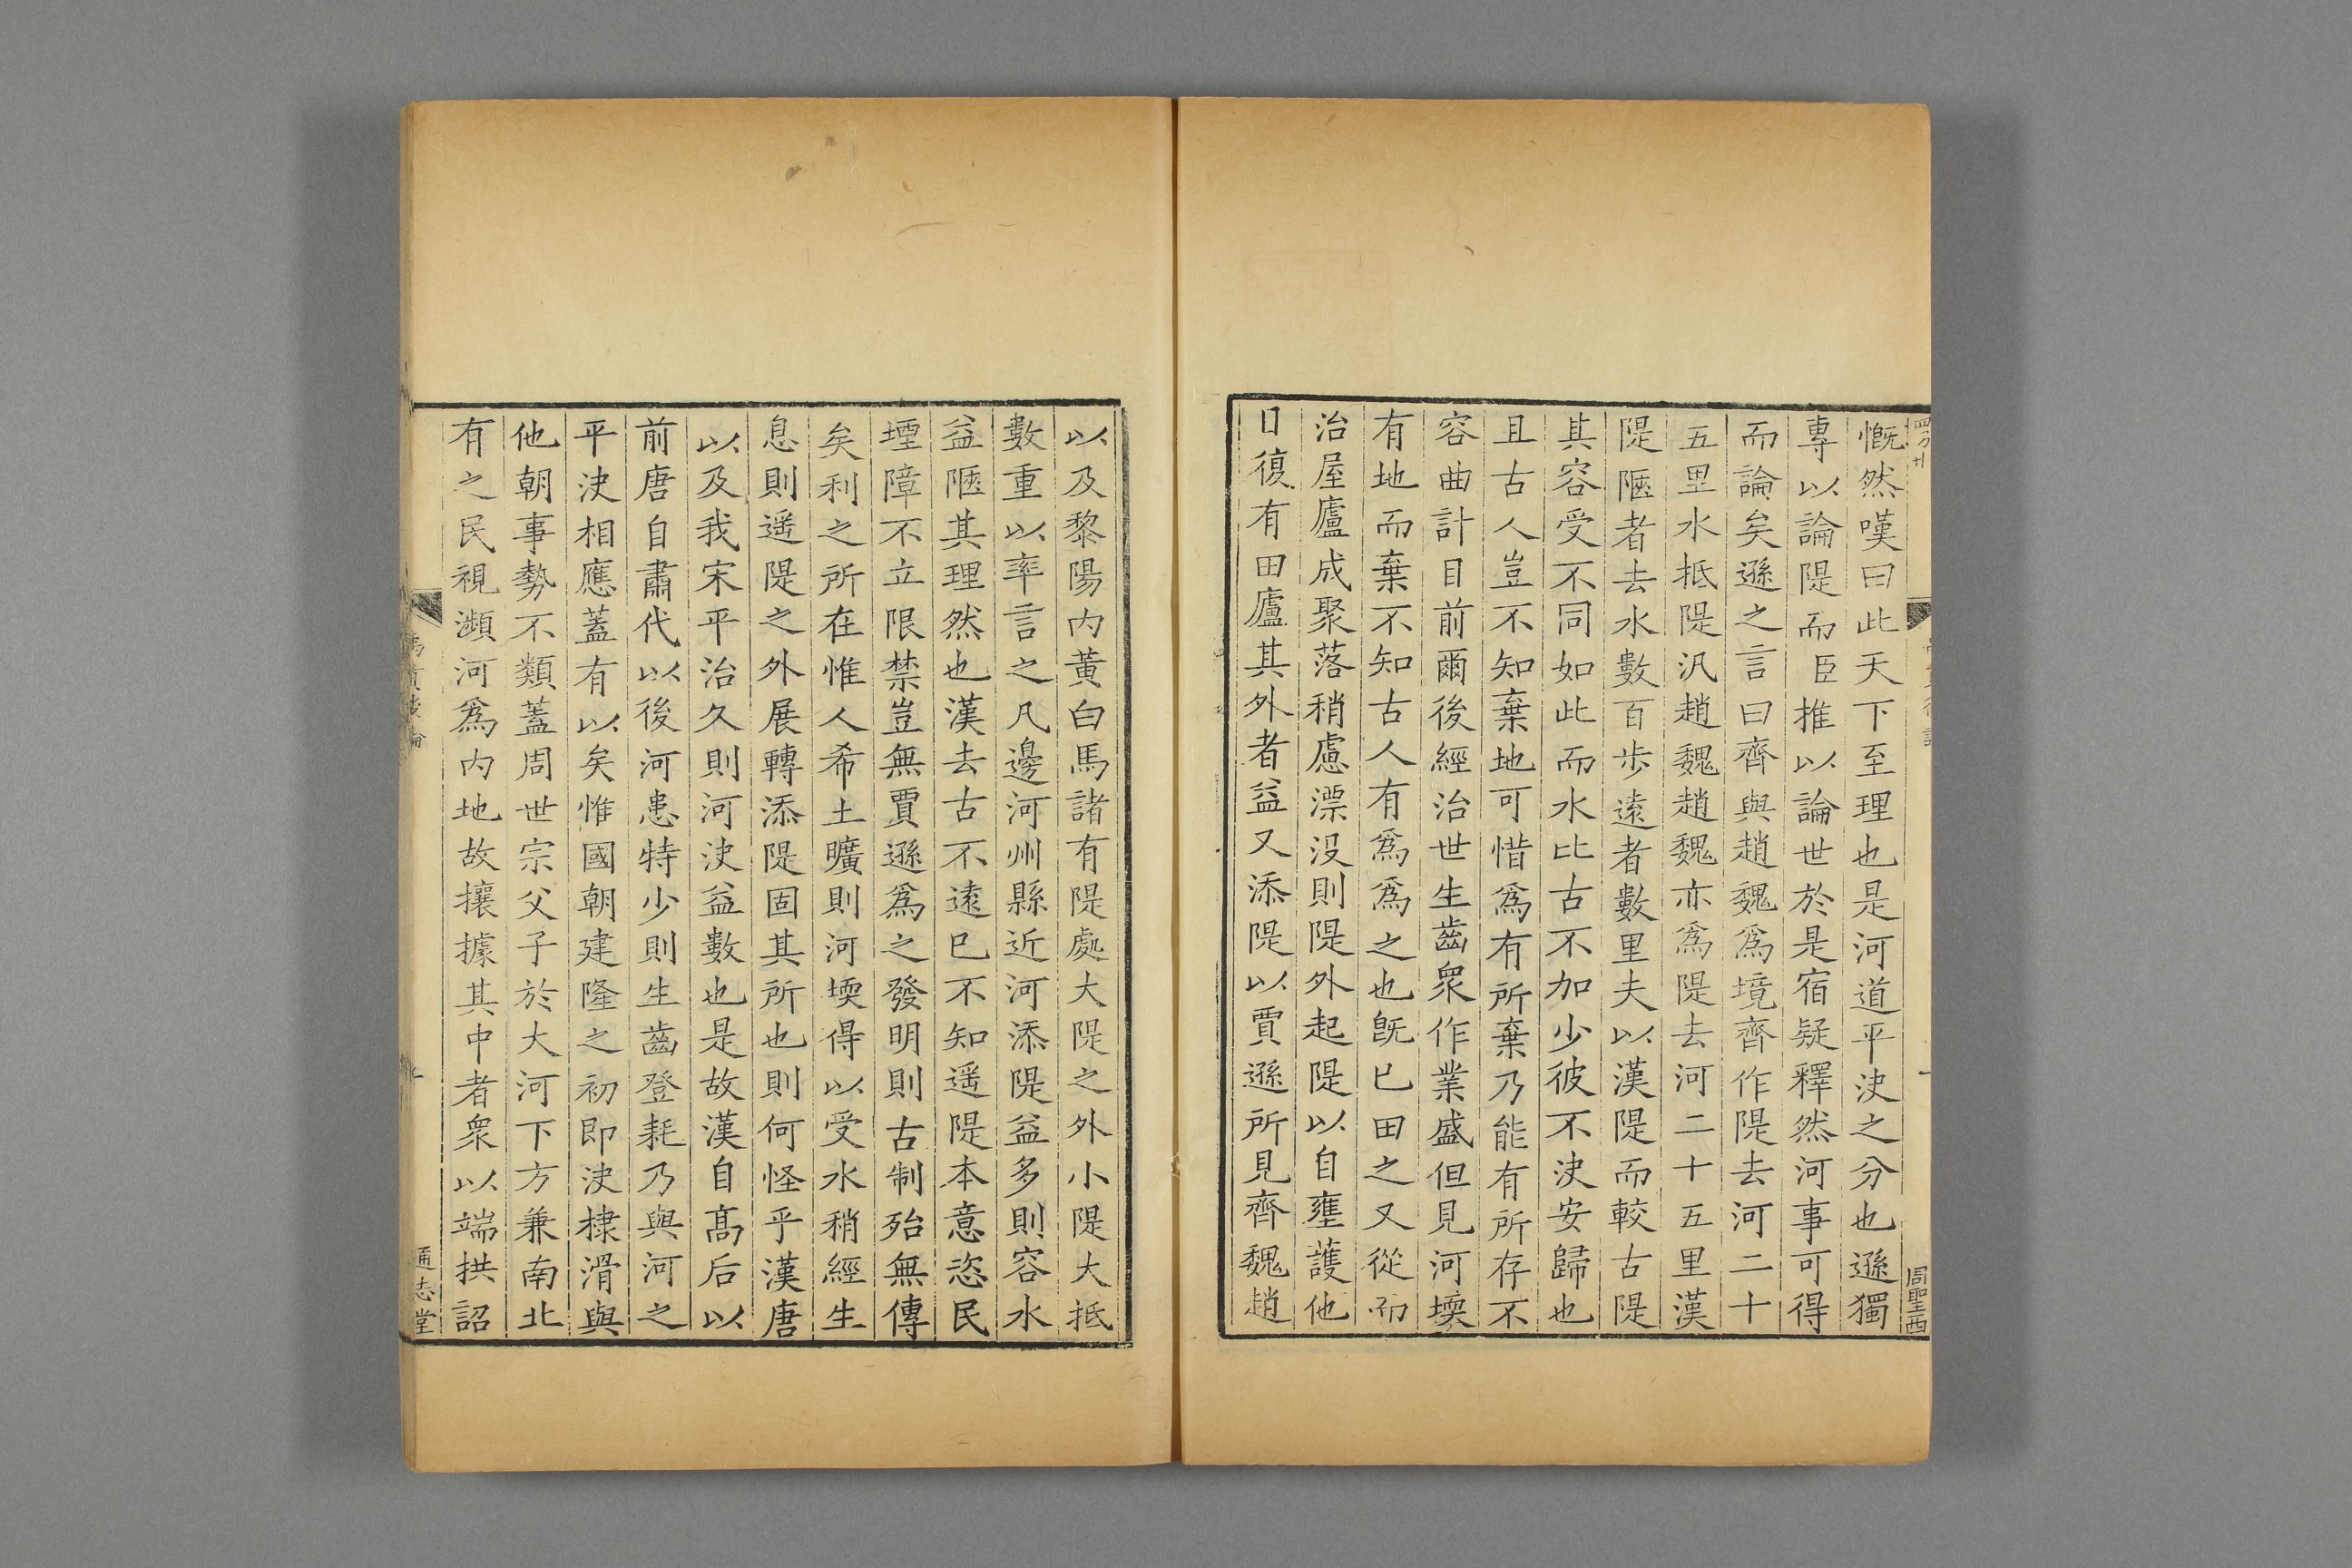 慨然嘆曰此天下至理也是河道平決之分也遜獨
專以論隄而臣推以論世於是宿疑釋然河事可得
而論矣遜之言曰齊與趙魏爲境齊作隄去河二十
五里水抵隄汎趙魏趙魏亦爲隄去河二十五里漢
隄陿者去水數百步遠者數里夫以漢隄而較古隄
其容受不同如此而水比古不加少彼不決安歸也
且古人豈不知棄地可惜爲有所棄乃能有所存不
容曲計目前爾後經治世生齒衆作業盛但見河壖
有地而棄不知古人有爲爲之也旣已田之又從而
治屋廬成聚落稍慮漂沒則隄外起隄以自壅護他
日復有田廬其外者益又添隄以賈遜所見齊魏趙
周聖西
以及黎陽內黃白馬諸有隄處大隄之外小隄大抵
數重以率言之凡邊河州縣近河添隄益多則容水
益陿其理然也漢去古不遠已不知遥隄本意恣民
堙障不立限禁豈無賈遜爲之發明則古制殆無傳
矣利之所在惟人希土曠則河壖得以受水稍經生
息則遥隄之外展轉添隄固其所也則何怪乎漢唐
以及我宋平治久則河決益數也是故漢自髙后以
前唐自肅代以後河患特少則生齒登耗乃與河之
平決相應蓋有以矣惟國朝建隆之初即決棣滑與
他朝事勢不類蓋周世宗父子於大河下方兼南北
有之民視瀕河爲內地故攘據其中者衆以端拱詔
通志堂